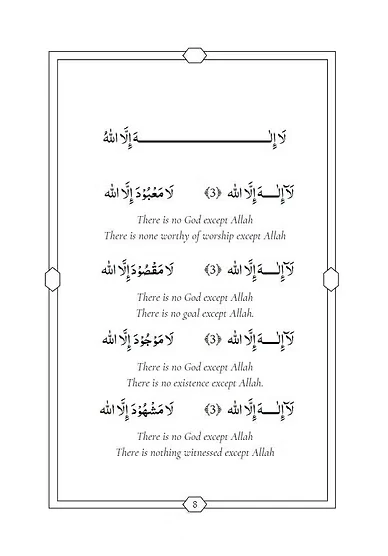 لَا إِلٰـــــــــــــــــــــــهَ إِلَّا اللهُ
لَآ إِلٰـــهَ إِلَّا الله ﴿3﴾ لَا مَعْبُوْدَ إِلَّا الله
There is no God except Allah
There is none worthy of worship except Allah
لَآ إِلٰـــهَ إِلَّا الله ﴿3﴾ لَا مَقْصُوْدَ إِلَّا الله
There is no God except Allah
There is no goal except Allah.
لَآ إِلٰـــهَ إِلَّا الله ﴿3﴾ لَا مَوْجُوْدَ إِلَّا الله
There is no God except Allah
There is no existence except Allah.
لَآ إِلٰـــهَ إِلَّا الله ﴿3﴾ لَا مَشْهُوْدَ إِلَّا الله
There is no God except Allah
There is nothing witnessed except Allah
8